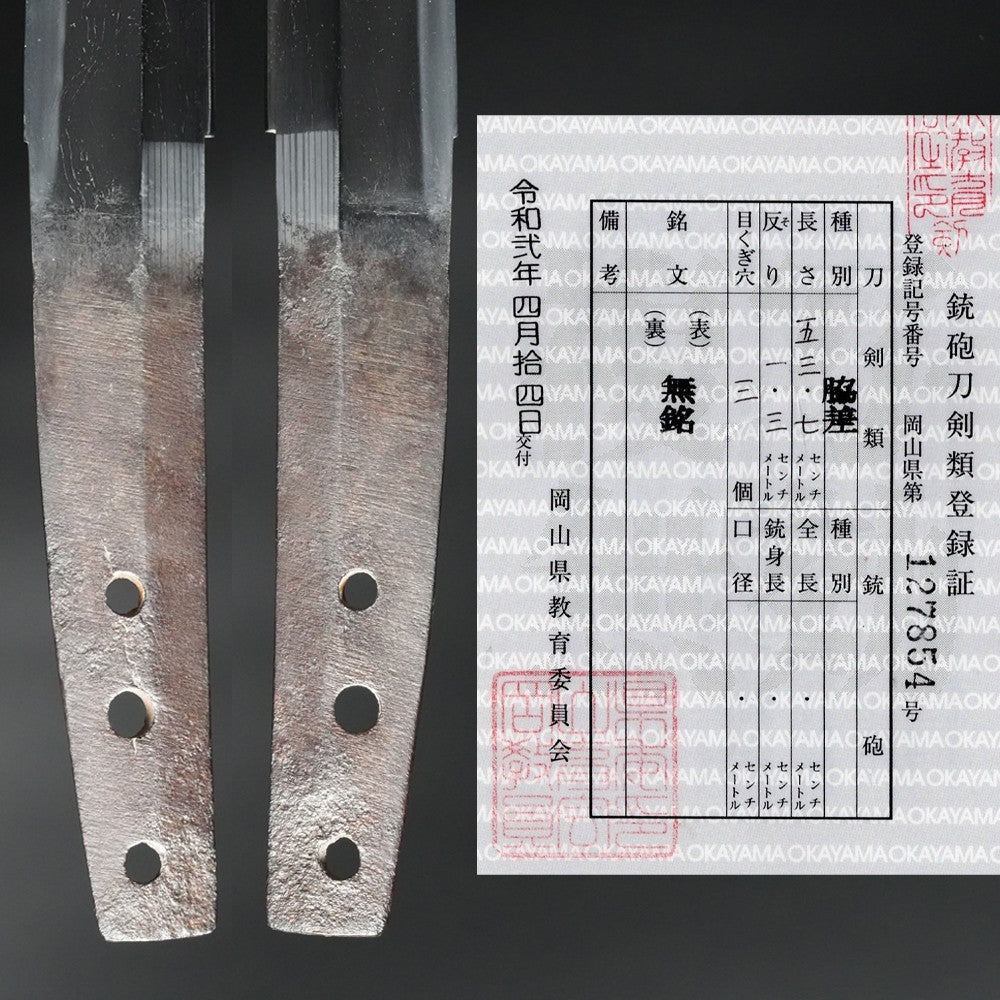 銃砲刀剣類登録証
登録記号番号 岡山県第 127854 号
刀剣類 銃砲
種別 脇差 種別
長さ 五三・七 センチメートル 全長 ・ センチメートル
反り そ 一・三 センチメートル 銃身長 ・ センチメートル
目くぎ穴 三 個 口径 ・ センチメートル
銘文 (表) (裏) 無銘
備考
令和弐年四月拾四日交付
岡山県教育委員会
OKAYAMA